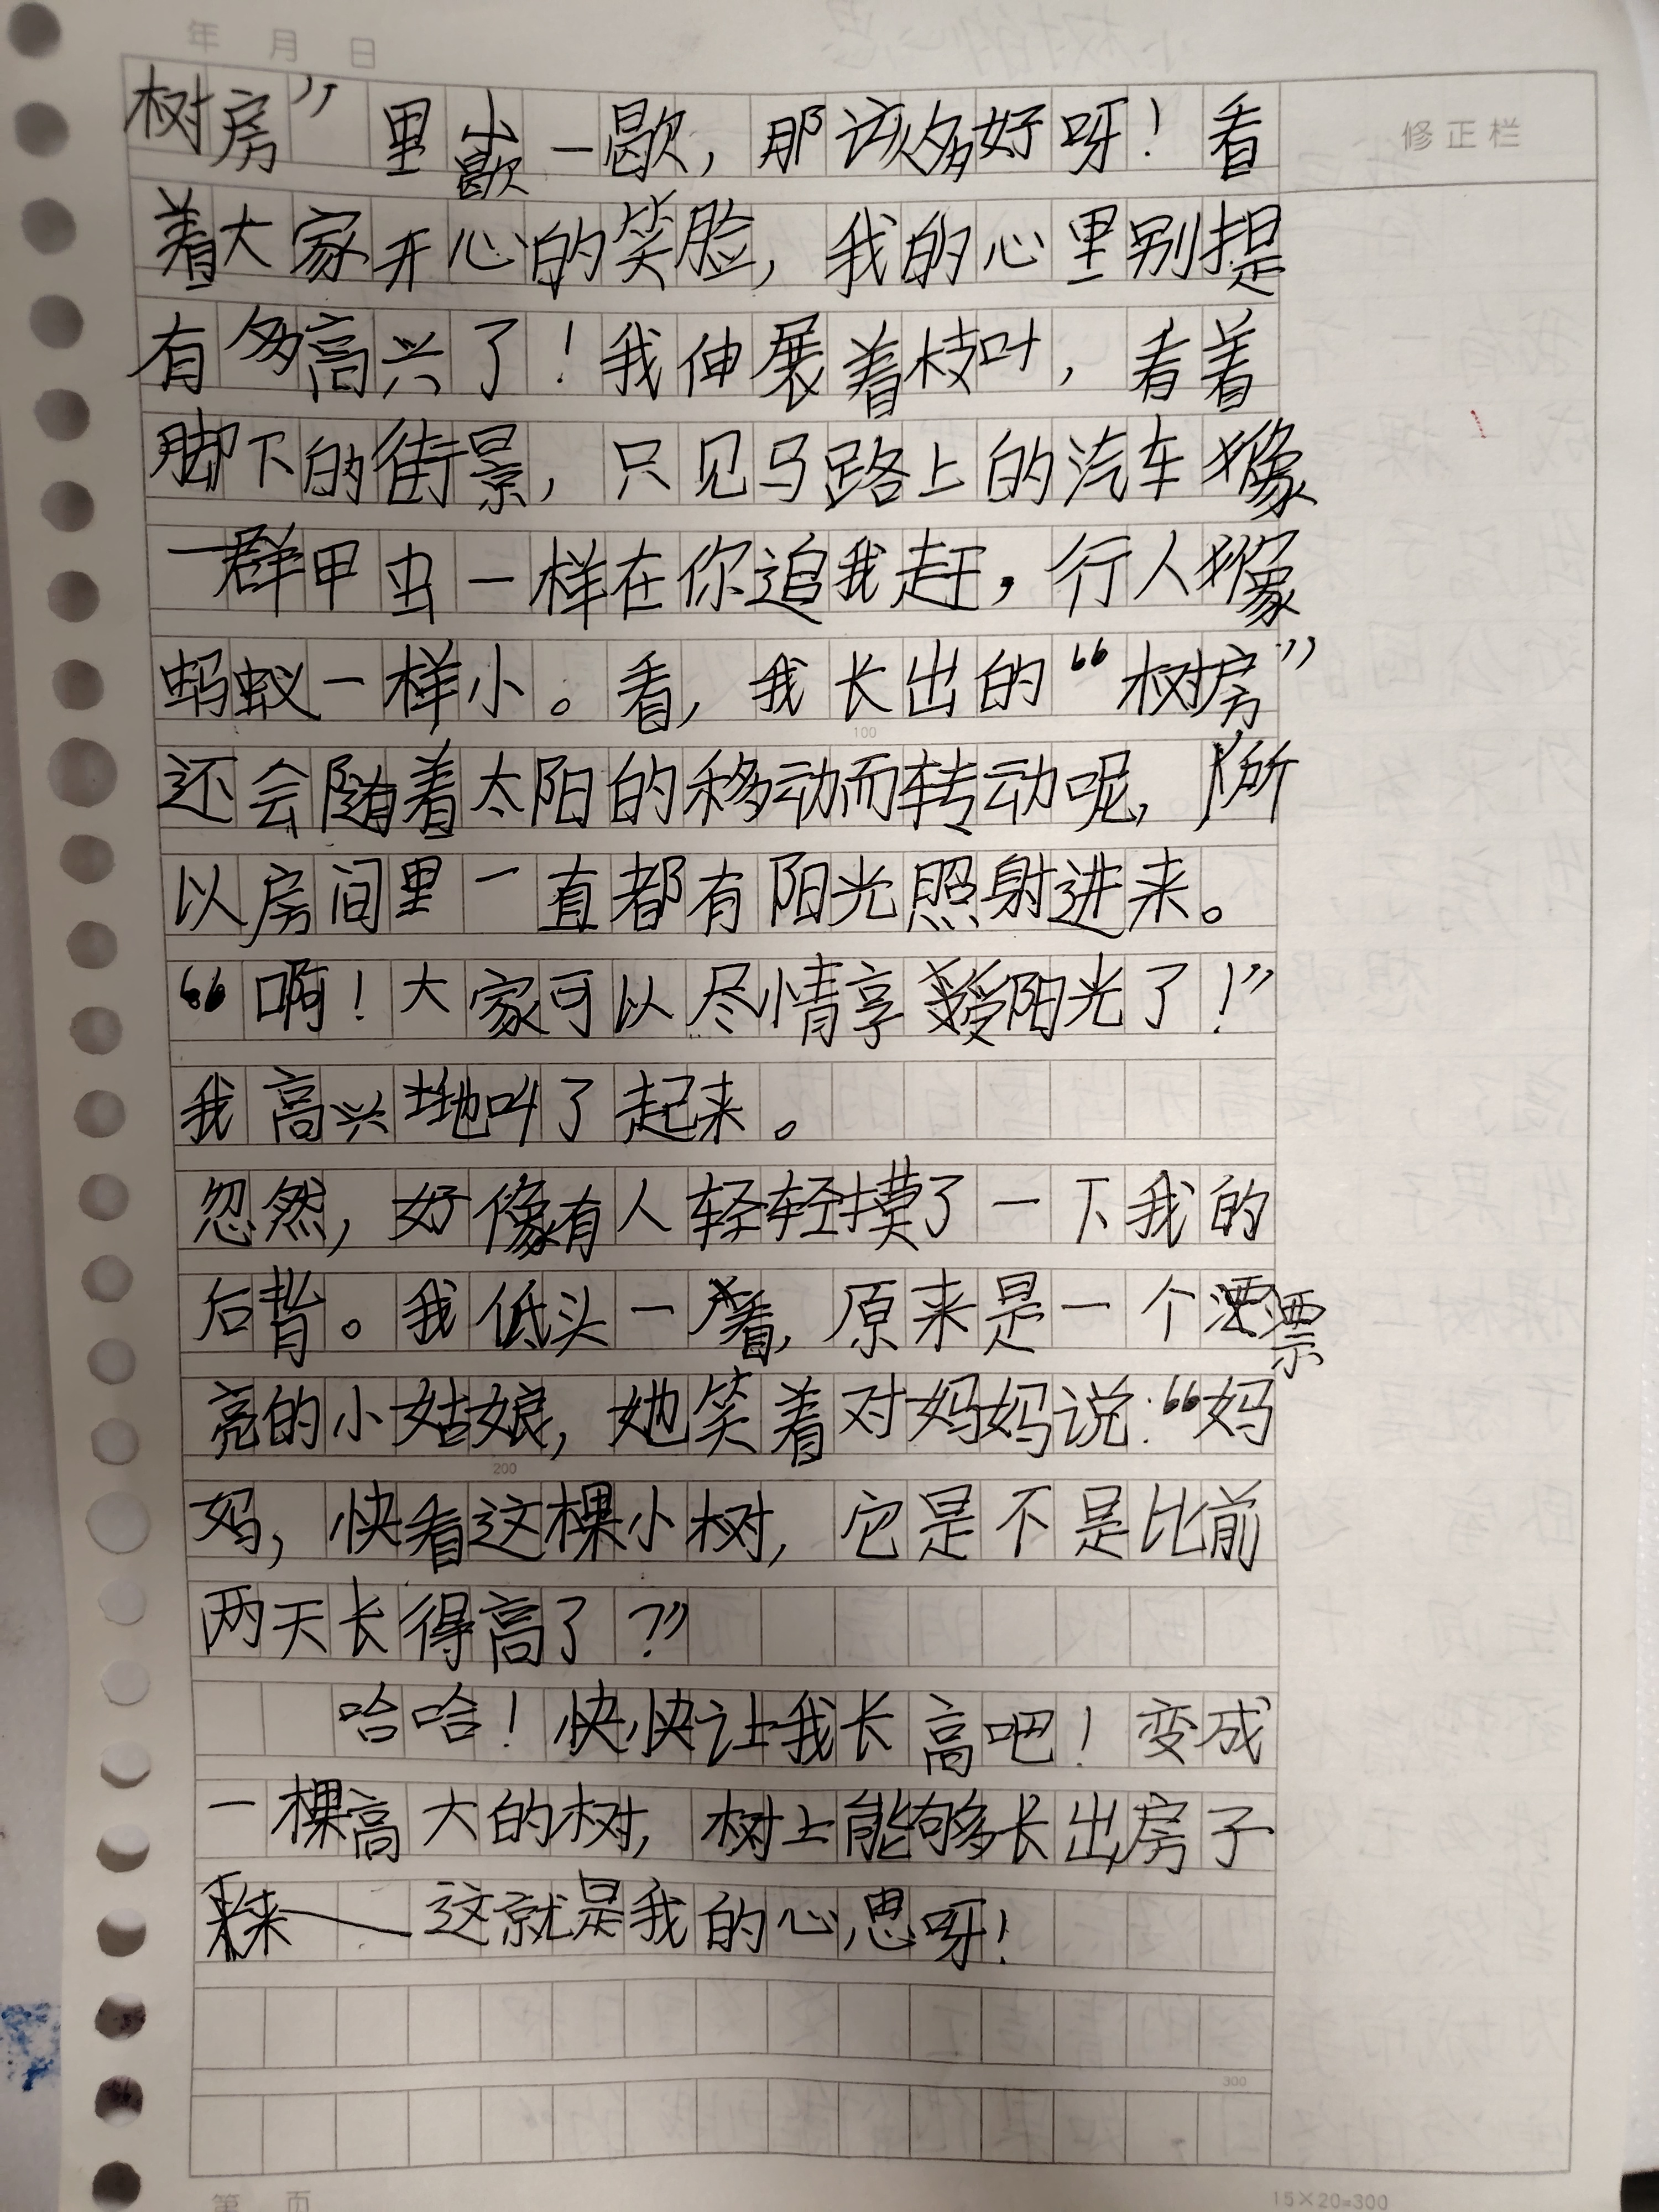 年 月 日
修正栏
树房”里歇一歇，那该多好呀！看
着大家开心的笑脸，我的心里别提
有多高兴了！我伸展着枝叶，看着
脚下的街景，只见马路上的汽车像
一群甲虫一样在你追我赶，行人像
蚂蚁一样小。看，我长出的“树房”
100
还会随着太阳的移动而转动呢，所
以房间里一直都有阳光照射进来。
“啊！大家可以尽情享受阳光了！”
我高兴地叫了起来。
忽然，好像有人轻轻摸了一下我的
后背。我低头一看，原来是一个漂
亮的小姑娘，她笑着对妈妈说：“妈
200
妈，快看这棵小树，它是不是比前
两天长得高了？”
哈哈！快快让我长高吧！变成
一棵高大的树，树上能够长出房子
来——这就是我的心思呀！
300
第 页
15×20=300